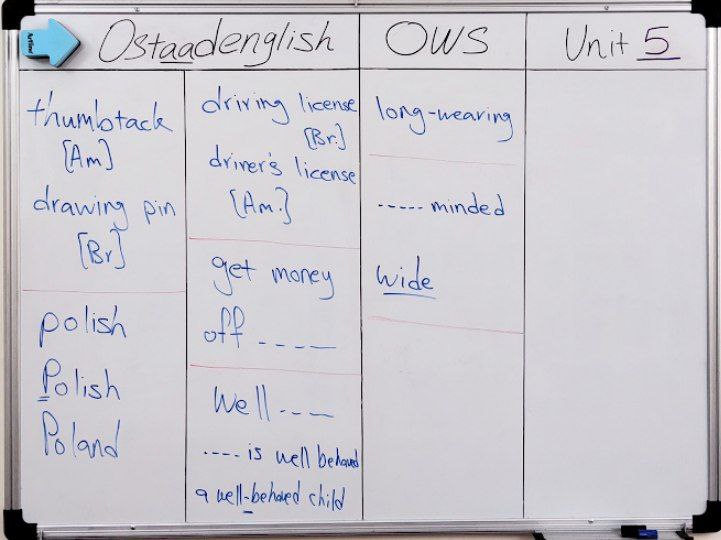 Ostaadenglish
OWS
Unit 5
thumbtack
[Am]
drawing pin
[Br]
polish
Polish
Poland
driving license
[Br.]
driver's license
[Am.]
get money
off ----
Well ---
---- is well behaved
a well-behaved child
long-wearing
----- minded
wide